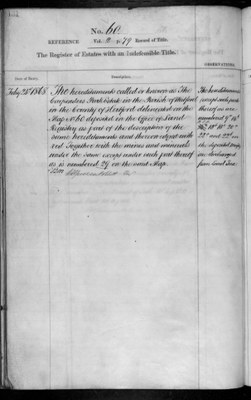 No. 60
REFERENCE Vol. 2 p. 79 Record of Title.
The Register of Estates with an Indefeasible Title.
OBSERVATIONS.
Date of Entry.
Description.
1868
The hereditaments called or known as The
Carpenders Park Estate in the Parish of Watford
in the County of Hertford delineated on the
Map No. 60 deposited in the Office of Land
Registry as part of the description of the
same hereditaments and thereon edged with
red Together with the mines and minerals
under the same except under such part thereof
as is numbered 29 on the said Map.
The hereditaments
except such part
thereof as are
numbered
the deposited Map
are discharged
from Land Tax